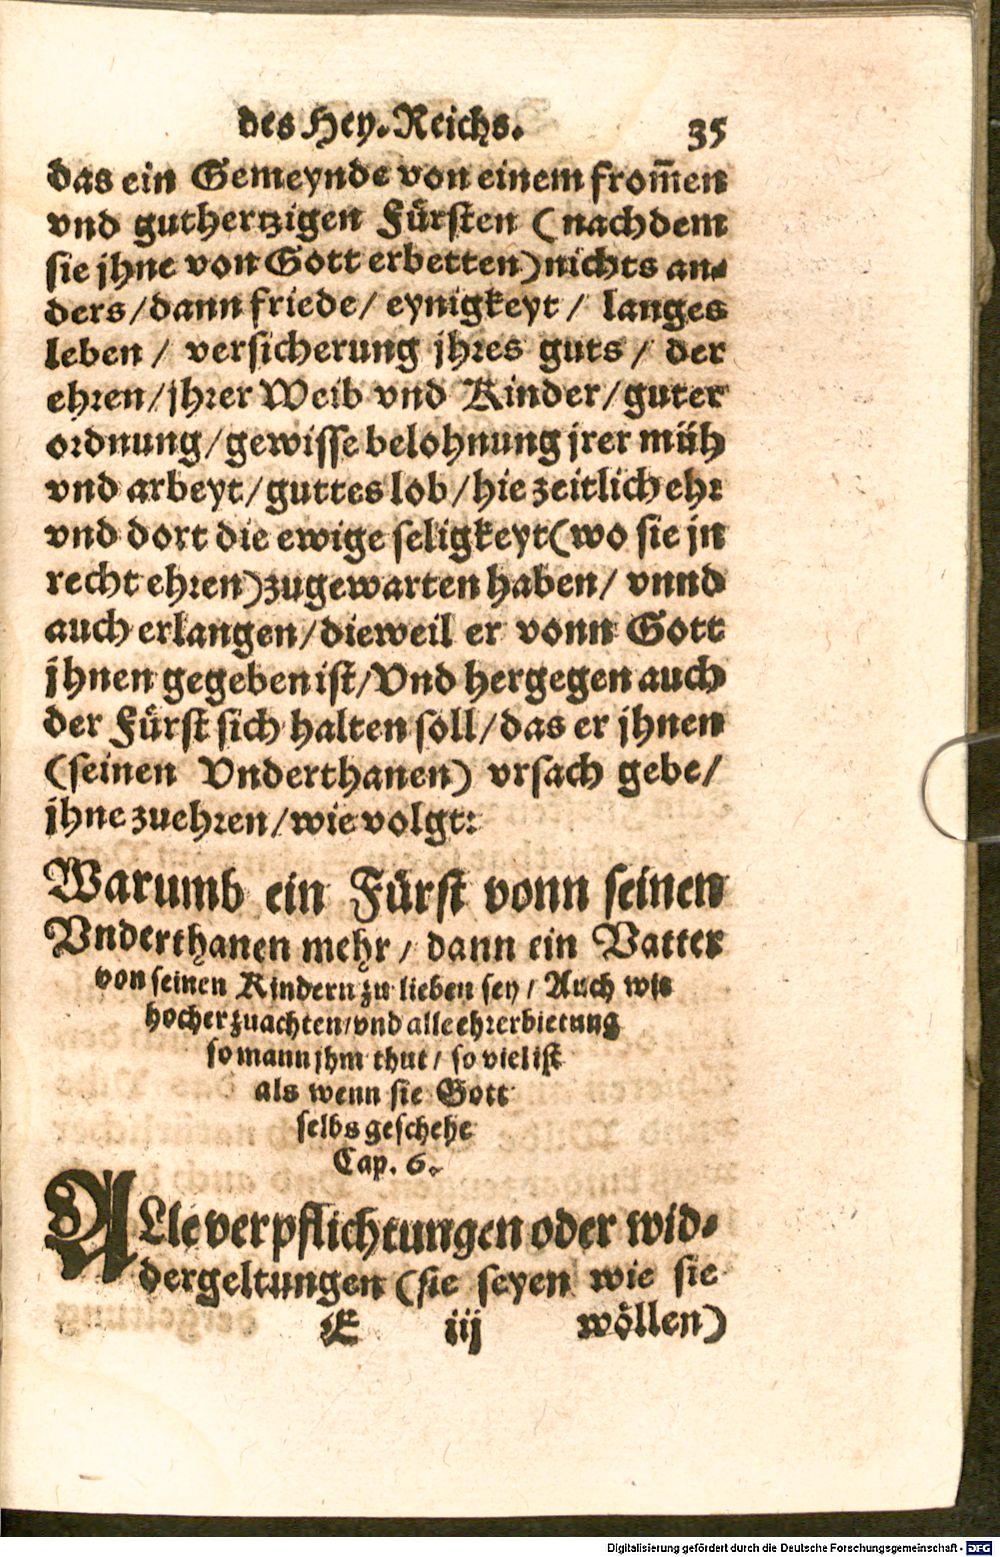 des Hey. Reichs. 35
das ein Gemeynde von einem from̃en
vnd guthertzigen Fürsten (nachdem
sie jhne von Gott erbetten) nichts an-
ders / dann friede / eynigkeyt / langes
leben / versicherung jhres guts / der
ehren / jhrer Weib vnd Kinder / guter
ordnung / gewisse belohnung jrer müh
vnd arbeyt / guttes lob / hie zeitlich ehr
vnd dort die ewige seligkeyt (wo sie jn
recht ehren) zugewarten haben / vnnd
auch erlangen / dieweil er vonn Gott
jhnen gegeben ist / Vnd hergegen auch
der Fürst sich halten soll / das er jhnen
(seinen Vnderthanen) vrsach gebe /
jhne zuehren / wie volgt:
Warumb ein Fürst vonn seinen
Vnderthanen mehr / dann ein Vatter
von seinen Kindern zu lieben sey / Auch wie
hocher zuachten / vnd alle ehrerbietung
so mann jhm thut / so viel ist
als wenn sie Gott
selbs geschehe
Cap. 6.
ALle verpflichtungen oder wid-
dergeltungen (sie seyen wie sie
E iij wöllen)
Digitalisierung gefördert durch die Deutsche Forschungsgemeinschaft - DFG